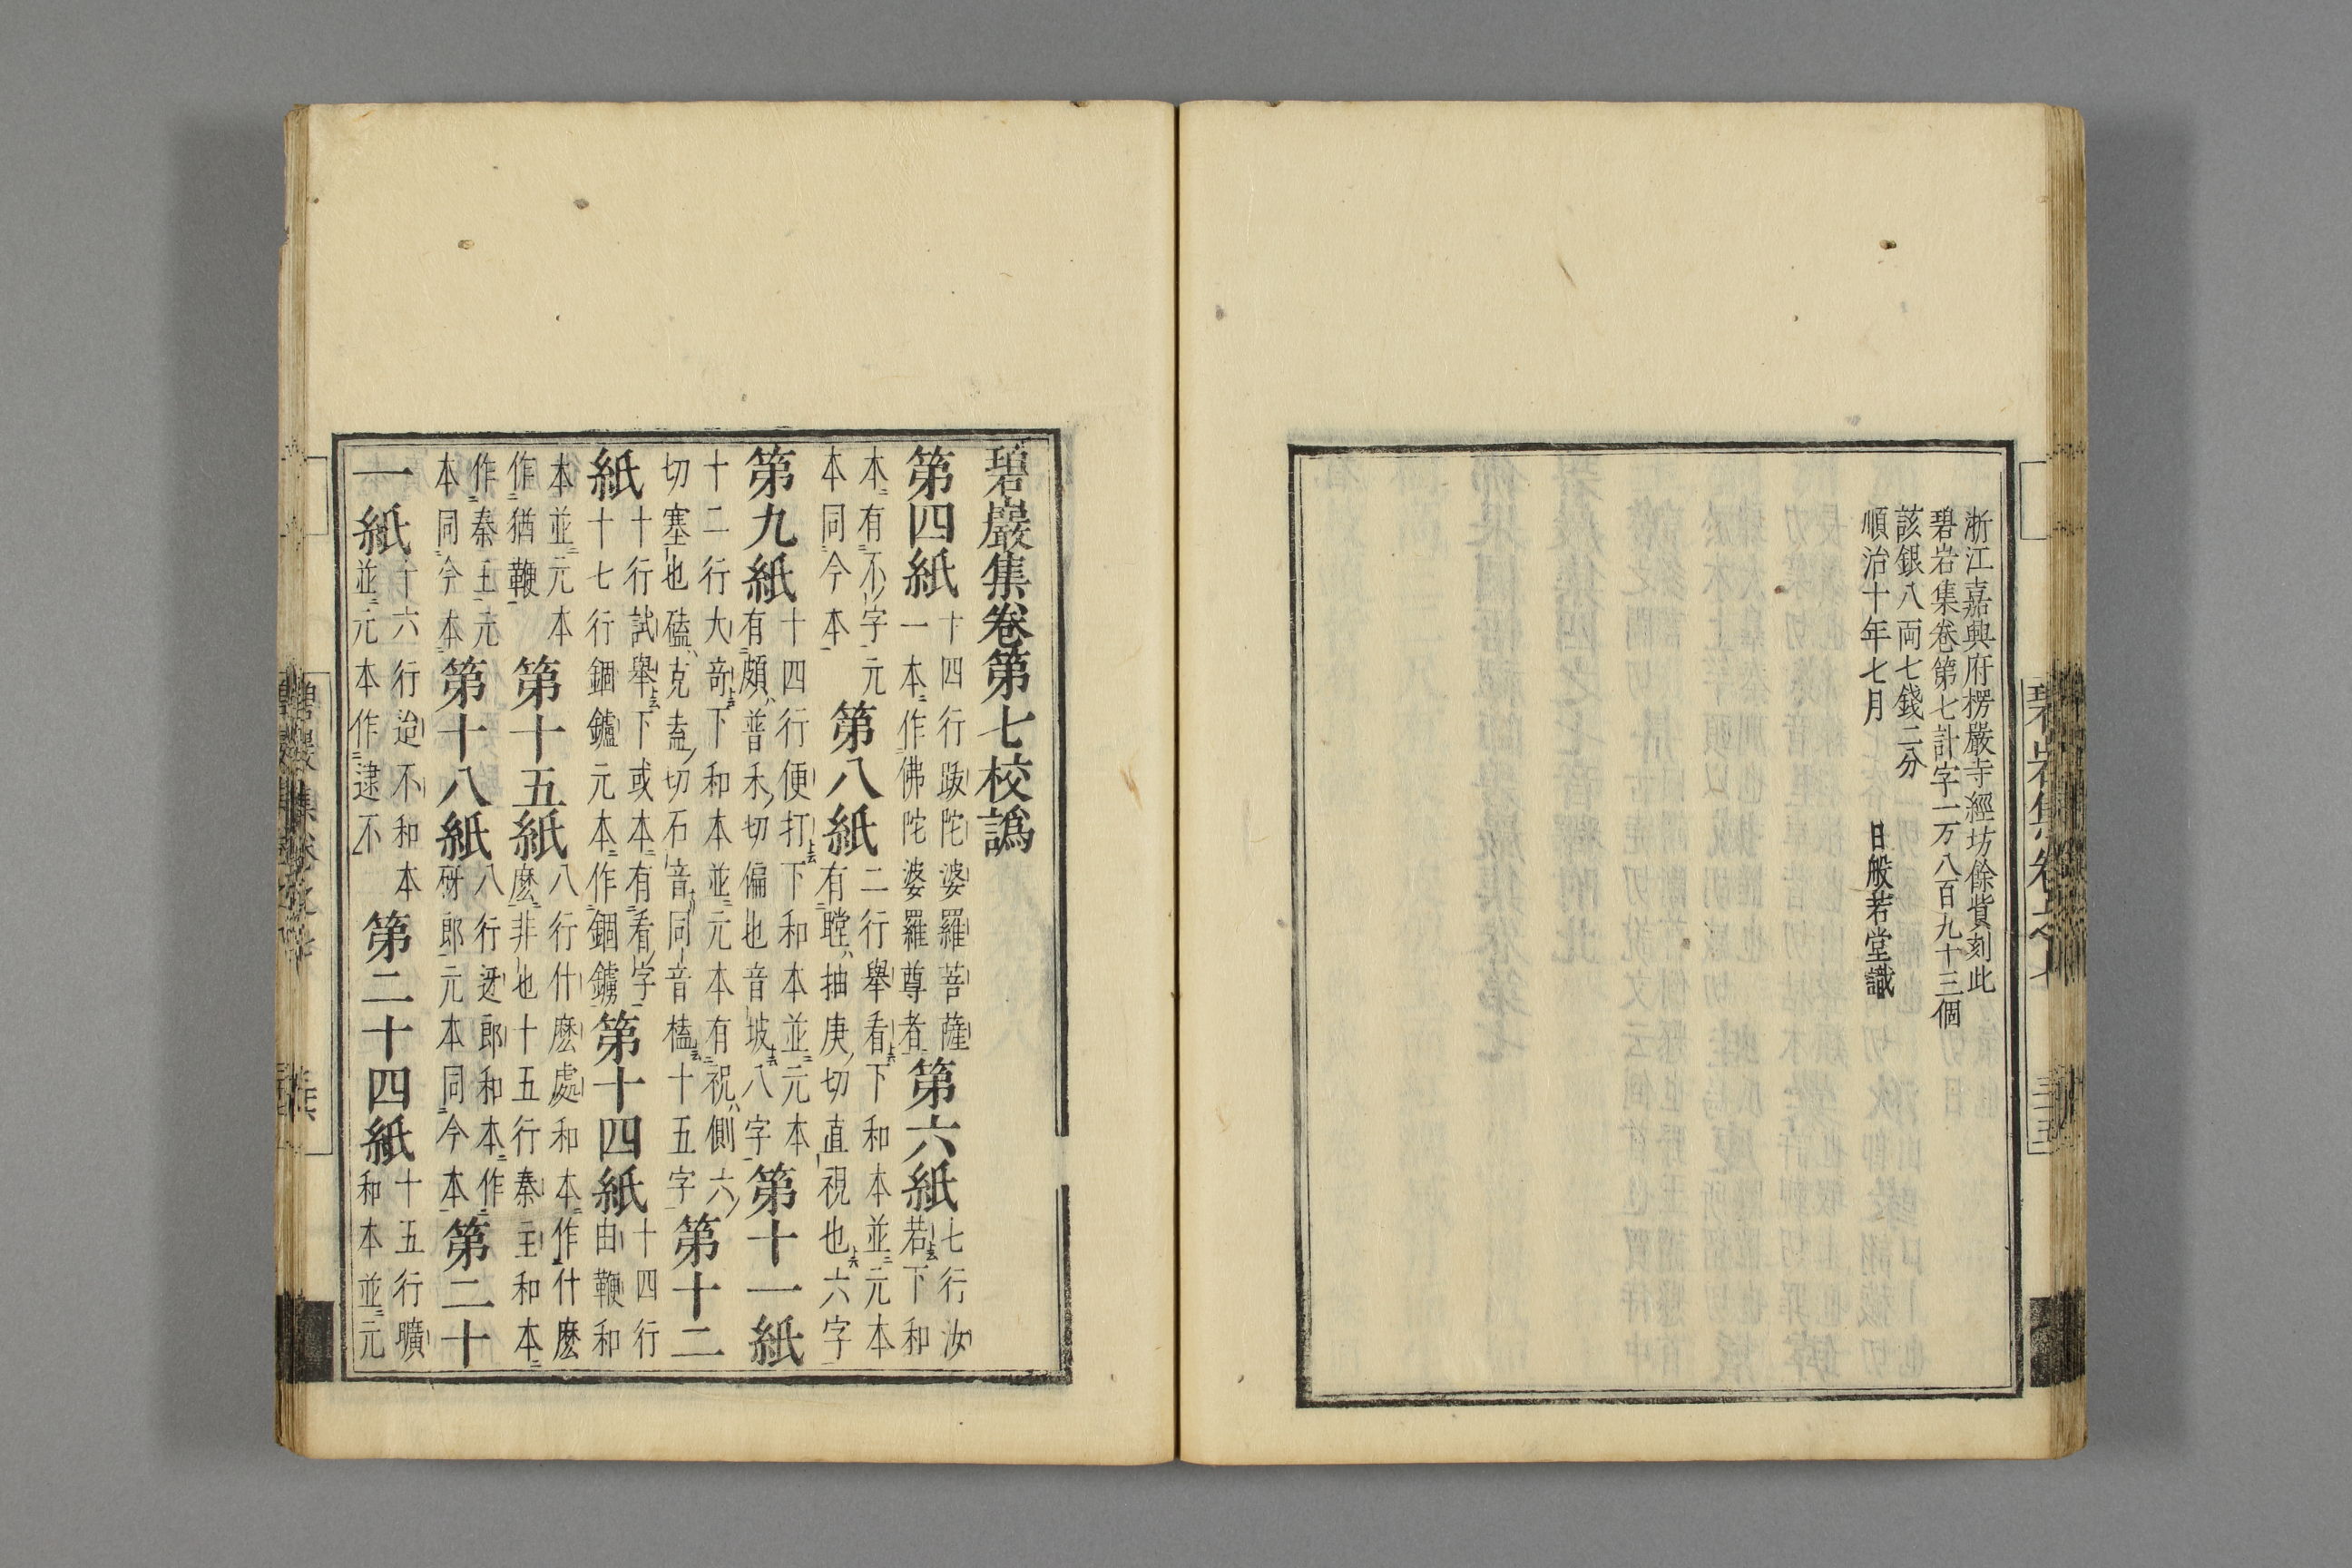 浙江嘉興府楞嚴寺經坊餘貲刻此
碧岩集卷第七計字一万八百九十三個
該銀八両七錢二分
順治十年七月 日般若堂識
碧巖集卷第七校譌
第四紙 十四行跋陀婆羅菩薩
一本作佛陀婆羅尊者 第六紙 七行汝
若下和
本有不字元
本同今本 第八紙 二行舉看下和本並元本
有瞠抽庚切直視也六字
第九紙 十四行便打下和本並元本
有頗普禾切偏也音坡八字 第十一紙
十二行大奇下和本並元本有祝側六
切塞也磕克盍切石音同音榼十五字 第十二
紙 十行試舉下或本有看字
十七行錮鑪元本作錮鐪 第十四紙 十四行
由鞭和
本並元本
作猶鞭 第十五紙 八行什麽處和本作什麽
麽非也十五行秦主和本
作秦王元
本同今本 第十八紙 八行迓郎和本作
砑郎元本同今本 第二十
一紙 十六行迨不和本
並元本作逮不 第二十四紙 十五行曠
和本並元
碧岩集卷之七
三十五